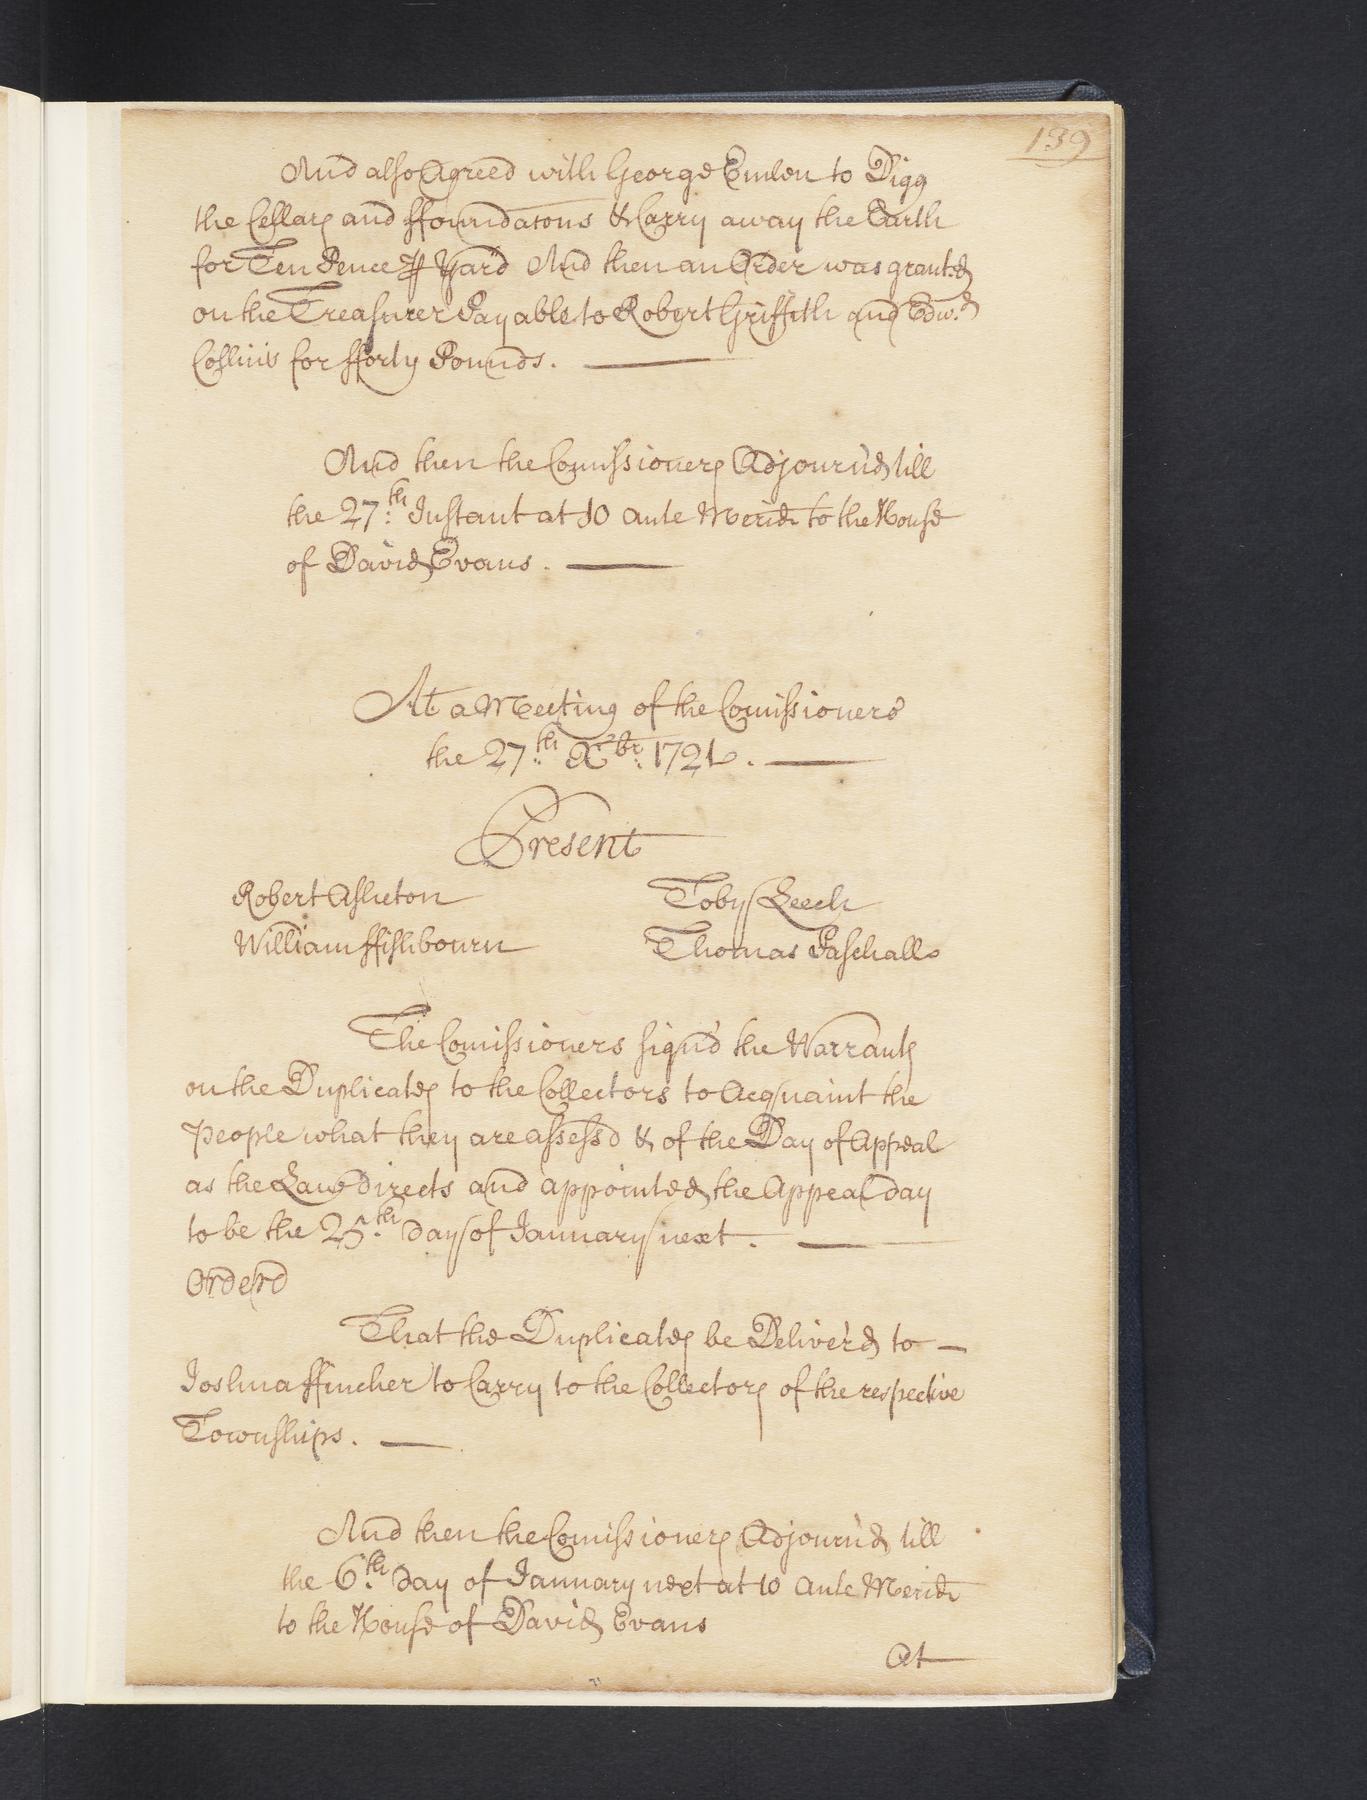 139
And also Agreed with George Emlen to Digg
the Cellars and ffoundations & Carry away the Earth
for Ten Pence ⅌ Yard And then an Order was granted
on the Treasurer Payable to Robert Griffith and Edw.d
Collins for fforty Pounds.
And then the Comissioners Adjourn'd till
the 27th Instant at 10 ante Merid: to the House
of David Evans.
At a Meeting of the Comissioners
the 27th Xbr: 1721.
Present
Robert Asheton
Toby Leech
William ffishbourn
Thomas Paschall
The Comissioners sign'd the Warrants
on the Duplicates to the Collectors to Acquaint the
People what they are assess'd & of the Day of Appeal
as the Law directs and appointed the Appeal day
to be the 25th day of January next.
Orderd
That the Duplicates be Deliver'd to
Joshua ffincher to Carry to the Collectors of the respective
Townships.
And then the Comissioners Adjourn'd till
the 6th day of January next at 10 ante Merid:
to the House of David Evans
At